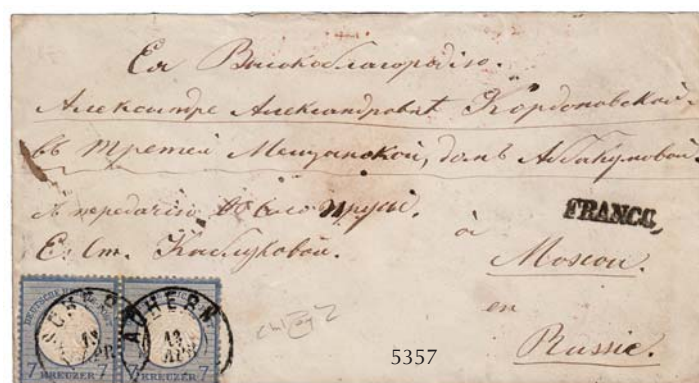 Ея Высокоблагородію.
Александре Александровнѣ Кордоновской,
въ третей Мещанской, домъ Аббакумовой.
съ передачею
Е. Ст. Каблуковой.
FRANCO.
à
Moscou.
en
Russie.
ACHERN
13
APR.
ACHERN
13
APR
7 KREUZER 7
7 KREUZER 7
5357